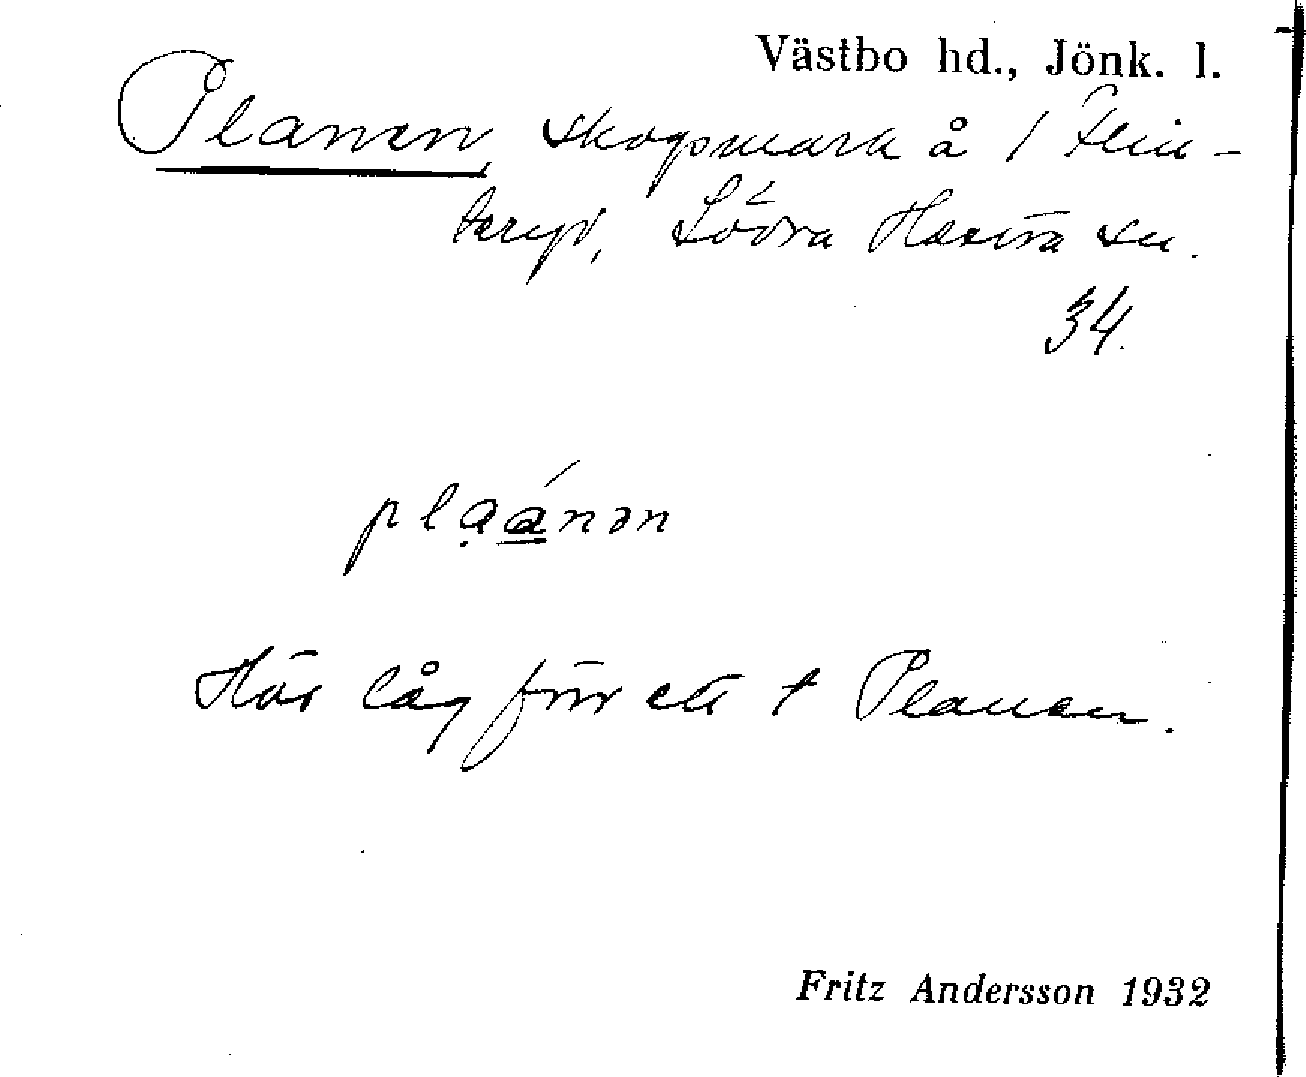 Västbo hd., Jönk. l.
Planen, skogsmark å 1 Flin-
teryd, Södra Hestra sn.
34.
plaánən
Här låg förr ett t Planen.
Fritz Andersson 1932